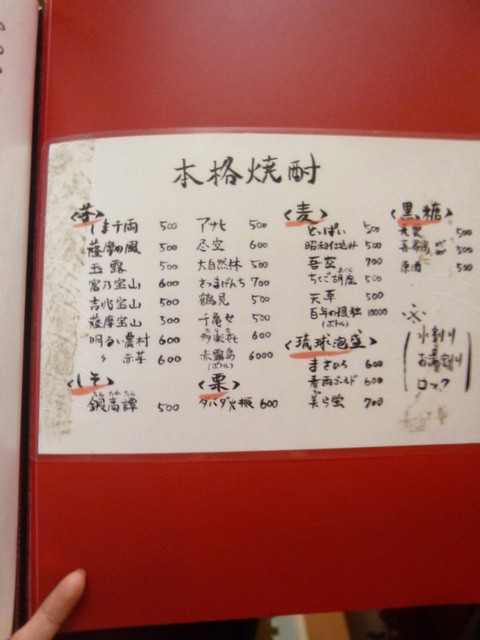 本格焼酎
<芋>
しま千両 500
薩摩の風 500
玉露 500
富乃宝山 600
吉兆宝山 500
薩摩宝山 500
明るい農村 600
〃 赤芋 600
<しそ>
鍛高譚 500
たんたかたん
アナヒ 500
尽空 600
大自然林 500
さつまげんち 700
鶴見 500
千亀女 500
600
赤霧島 6000
(ボトル)
<栗>
ダバダ火振 600
<麦>
とっぱい 500
昭和仕込み 500
吾空 700
ちくご胡座 500
天草 500
百年の孤独 10000
(ボトル)
<琉球泡盛>
まさひろ 600
春雨ゴールド 600
美ら蛍 700
<黒糖>
500
500
原酒 500
※
水割り
お湯割り
ロック